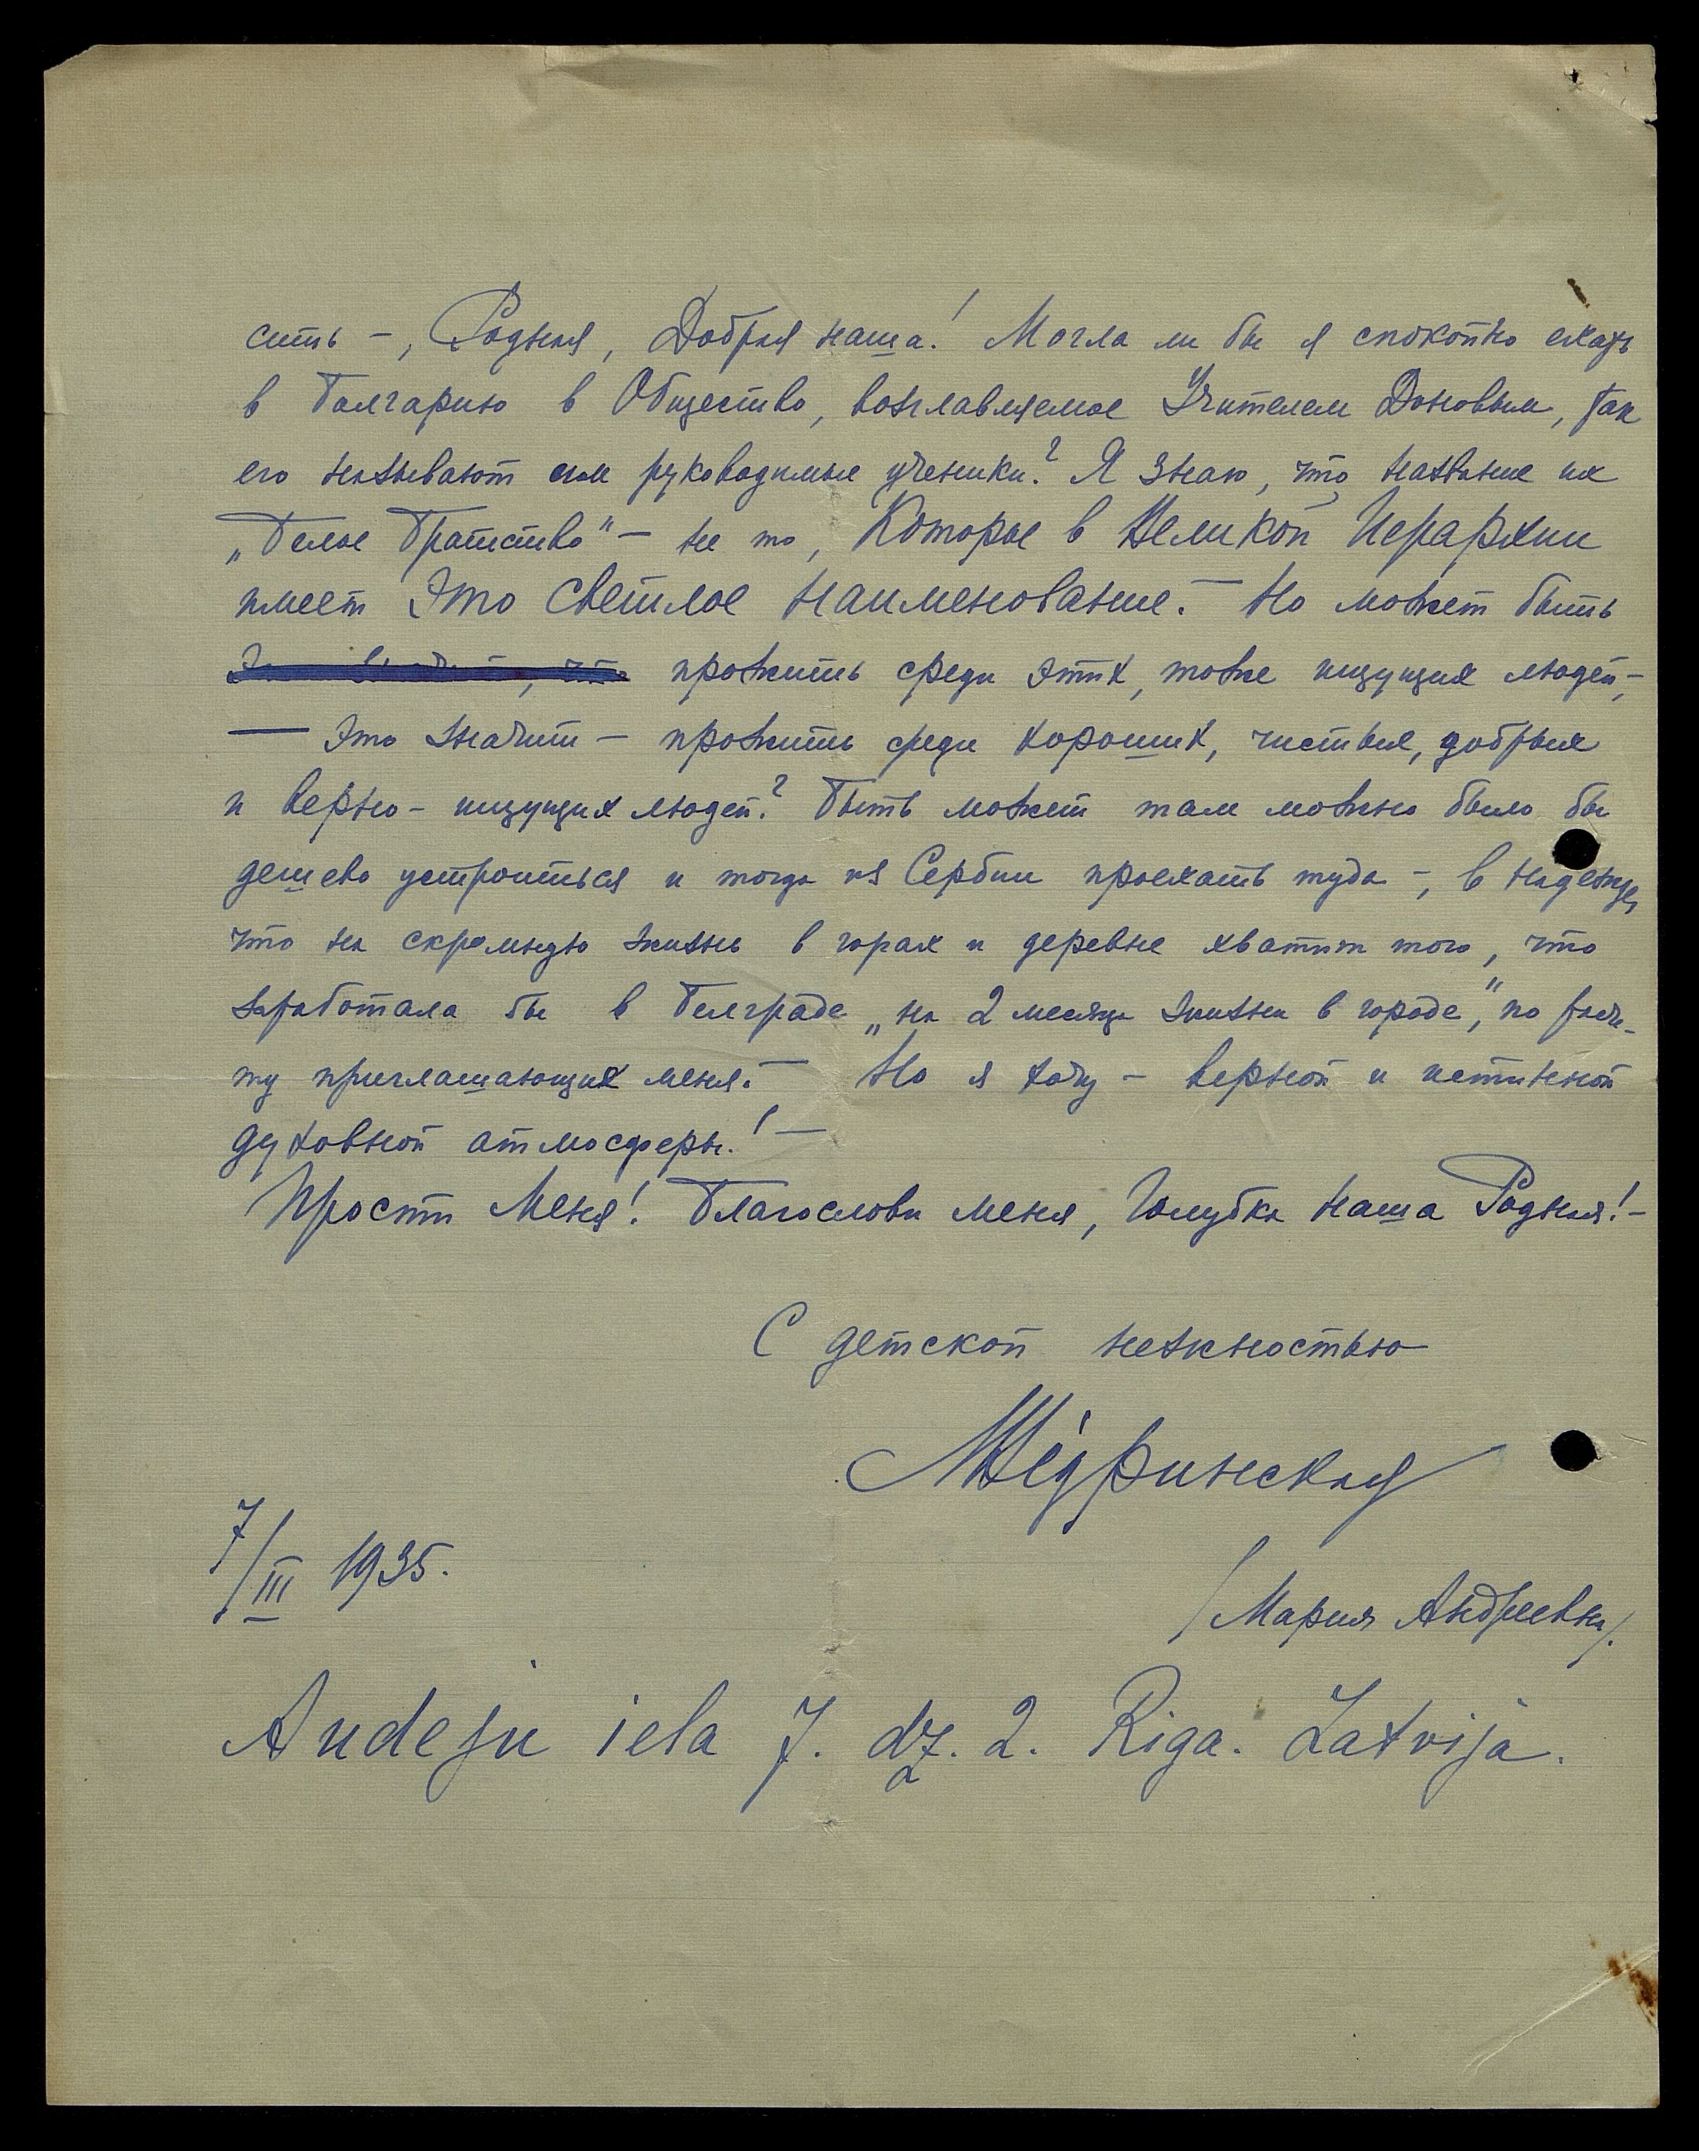 сить –, Родная, Добрая наша! Могла ли бы я спокойно ехать
в Болгарию в Общество, возглавляемое Учителем Доновым, так
его называют им руководимые ученики? Я знаю, что название их
„Белое Братство" – не то, Которое в Великой Иерархии
имеет Это Светлое Наименование. – Но может быть
прожить среди этих, тоже ищущих людей –,
— это значит – прожить среди хороших, чистых, добрых
и верно – ищущих людей? Быть может там можно было бы
дешево устроиться и тогда из Сербии проехать туда –, в надежде,
что на скромную жизнь в горах и деревне хватит того, что
заработала бы в Белграде „на 2 месяца жизни в городе", по расче-
ту приглашающих меня. – Но я хочу – верной и истинной
духовной атмосферы! –
Прости Меня! Благослови меня, Голубка Наша Родная! –
С детской нежностью
(Мария Андреевна).
7/III 1935.
Audeju iela 7. dz. 2. Riga. Latvija.